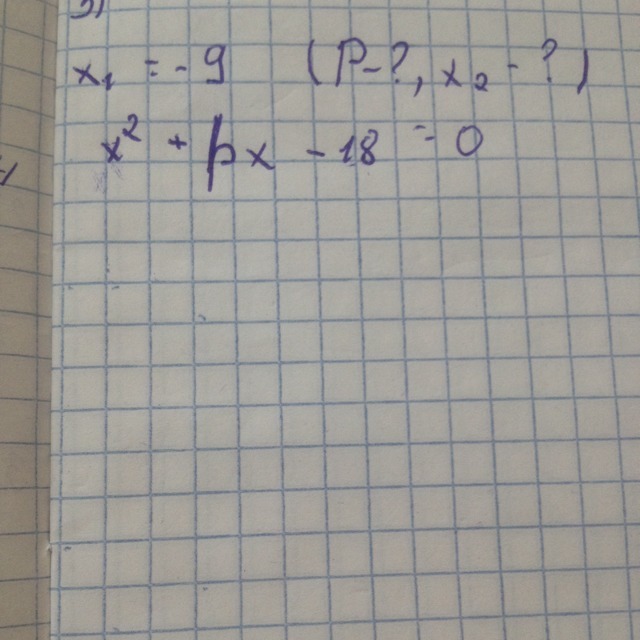 3)
x₁ = -9 (P-?, x₂ - ?)
x² + px - 18 = 0